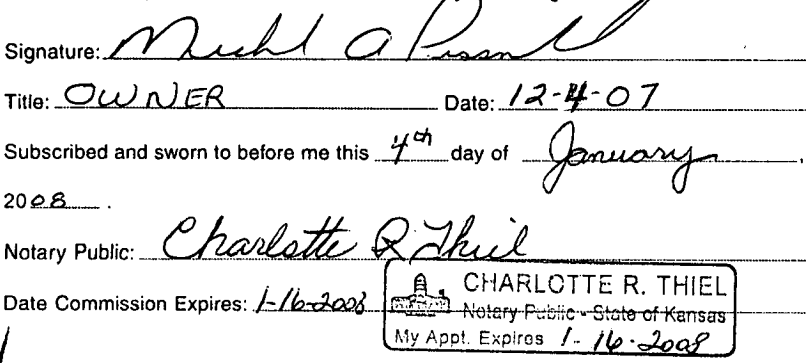 Signature: Michl A
Title: OWNER Date: 12-4-07
Subscribed and sworn to before me this 4th day of January,
2008.
Notary Public: Charlotte R Thiel
CHARLOTTE R. THIEL
Date Commission Expires: 1-16-2008 Notary Public - State of Kansas
My Appt. Expires 1-16-2008